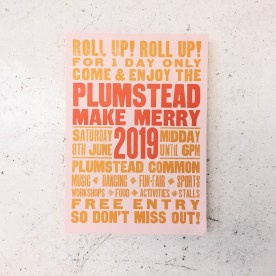 ROLL UP! ROLL UP!
FOR 1 DAY ONLY
COME & ENJOY THE
PLUMSTEAD
MAKE MERRY
SATURDAY 2019 MIDDAY
8TH JUNE UNTIL 6PM
PLUMSTEAD COMMON
MUSIC + DANCING + FUN-FAIR + SPORTS
WORKSHOPS + FOOD + ACTIVITIES + STALLS
FREE ENTRY
SO DON'T MISS OUT!